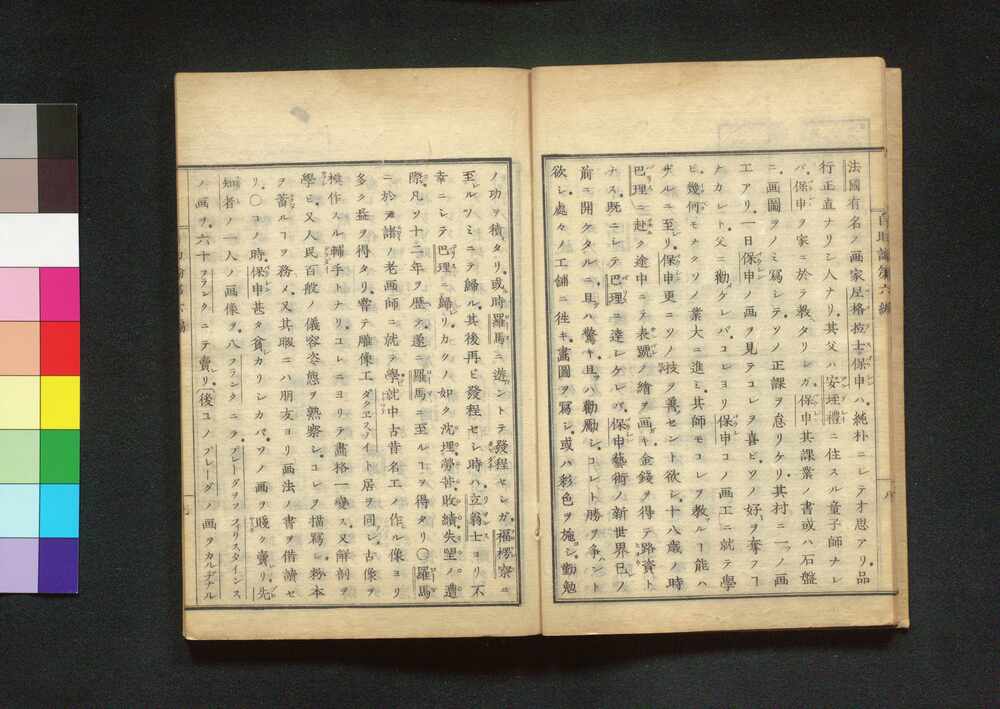 法國有名ノ画家尼格拉士保申ハ純朴ニシテ才思アリ品
行正直ナリシ人ナリ其父ハ安垤禮ニ住スル童子師ナレ
バ保申ヲ家ニ於テ教タリシガ保申其課業ノ書或ハ石盤
ニ画圖ヲノミ寫シテソノ正課ヲ怠リケリ其村ニ一ノ画
工アリ一日保申ノ画ヲ見テコレヲ喜ビソノ好ヲ奪フヿ
ナカレト父ニ勸ゲレバコレヨリ保申コノ画工ニ就テ學
ビ幾何モナクソノ業大ニ進ミ其師モコレヲ教ルヿ能ハ
ザルニ至リ保申更ニソノ技ヲ善セント欲シ十八歳ノ時
巴理ニ赴ク途中ニテ表號ノ繪ヲ画キ金錢ヲ得テ路資ト
ナス既ニシテ巴理ニ達シケレバ保申藝術ノ新世界已ノ
前ニ開ケタルニ且ハ驚キ且ハ勸勵シコレト勝ヲ争ント
欲シ處々ノ工舗ニ徃キ畫圖ヲ寫シ或ハ彩色ヲ施シ勤勉
ノ功ヲ積タリ或時羅馬ニ遊ントテ發程セシガ福楞察ニ
至ルノミニテ歸ル其後再ビ發程セシ時ハ立翁士ヨリ不
幸ニシテ巴理ニ歸リカクノ如ク沈埋勞苦敗績失望ノ遭
際凡ソ十二年ヲ歴テ遂ニ羅馬ニ至ルヿヲ得タリ〇羅馬
ニ於テ諸ノ老画師ニ就テ學就中古昔名工ノ作ル像ヨリ
多ク益ヲ得タリ甞テ雕像工ダクエスノイト居ヲ同シ古像ヲ
模作スル輔手トナリコレニヨリテ畵格一變ス又解剖ヲ
學ビ又人民百般ノ儀容姿態ヲ熟察シコレヲ描寫シ粉本
ヲ蓄ルヿヲ務メ又其暇ニハ朋友ヨリ画法ノ書ヲ借讀セ
リ〇コノ時保申甚タ貧カリシカバソノ画ヲ賤ク賣リ先
知者ノ一人ノ画像ヲ八フランクニテプレーグヲフイリスタインス
ノ画ヲ六十フランクニテ賣リ後コノプレーグノ画ヲカルヂナル